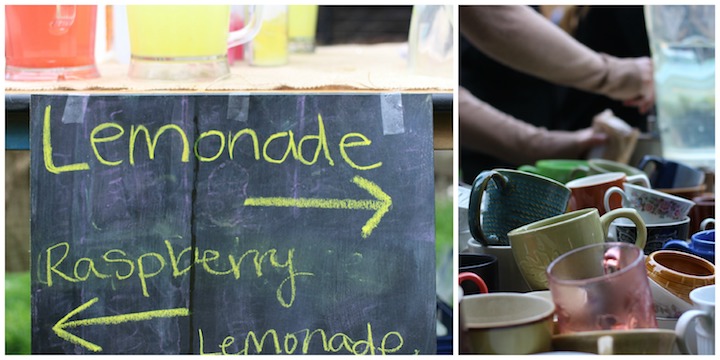 Lemonade
Raspberry
Lemonade.